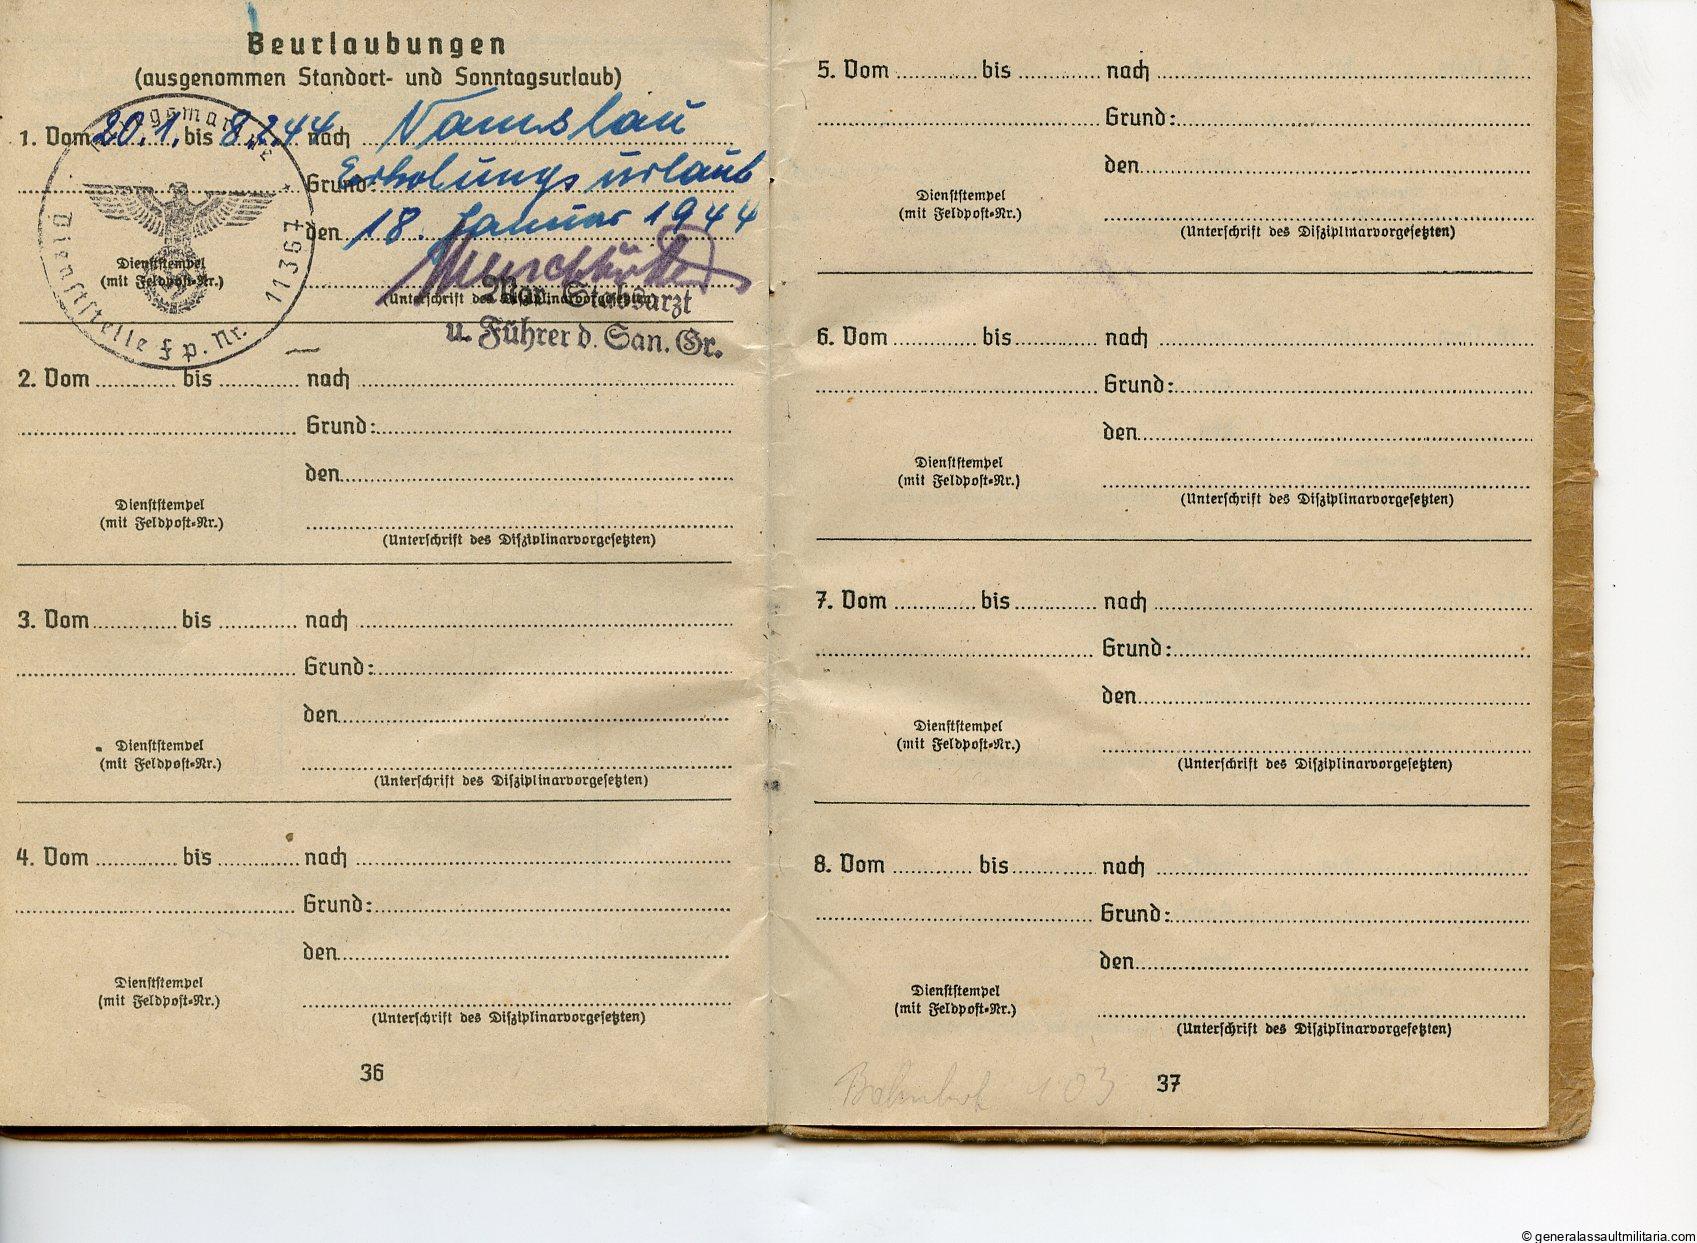 Beurlaubungen
(ausgenommen Standort- und Sonntagsurlaub)
1. Vom 20.1. bis 8.2.44 nach Namslau
Grund: Erholungsurlaub
den 18. Januar 1944
Dienststempel
(mit Feldpost-Nr.)
(Unterschrift des Disziplinarvorgesetzten)
Mar. Stabsarzt
u. Führer d. San. Gr.
Kriegsmarine
Dienststelle Fp. Nr. 11367
2. Vom bis nach
Grund:
den
Dienststempel
(mit Feldpost-Nr.)
(Unterschrift des Disziplinarvorgesetzten)
3. Vom bis nach
Grund:
den
Dienststempel
(mit Feldpost-Nr.)
(Unterschrift des Disziplinarvorgesetzten)
4. Vom bis nach
Grund:
den
Dienststempel
(mit Feldpost-Nr.)
(Unterschrift des Disziplinarvorgesetzten)
36
5. Vom bis nach
Grund:
den
Dienststempel
(mit Feldpost-Nr.)
(Unterschrift des Disziplinarvorgesetzten)
6. Vom bis nach
Grund:
den
Dienststempel
(mit Feldpost-Nr.)
(Unterschrift des Disziplinarvorgesetzten)
7. Vom bis nach
Grund:
den
Dienststempel
(mit Feldpost-Nr.)
(Unterschrift des Disziplinarvorgesetzten)
8. Vom bis nach
Grund:
den
Dienststempel
(mit Feldpost-Nr.)
(Unterschrift des Disziplinarvorgesetzten)
Bahnhof 103
37
© generalassaultmilitaria.com